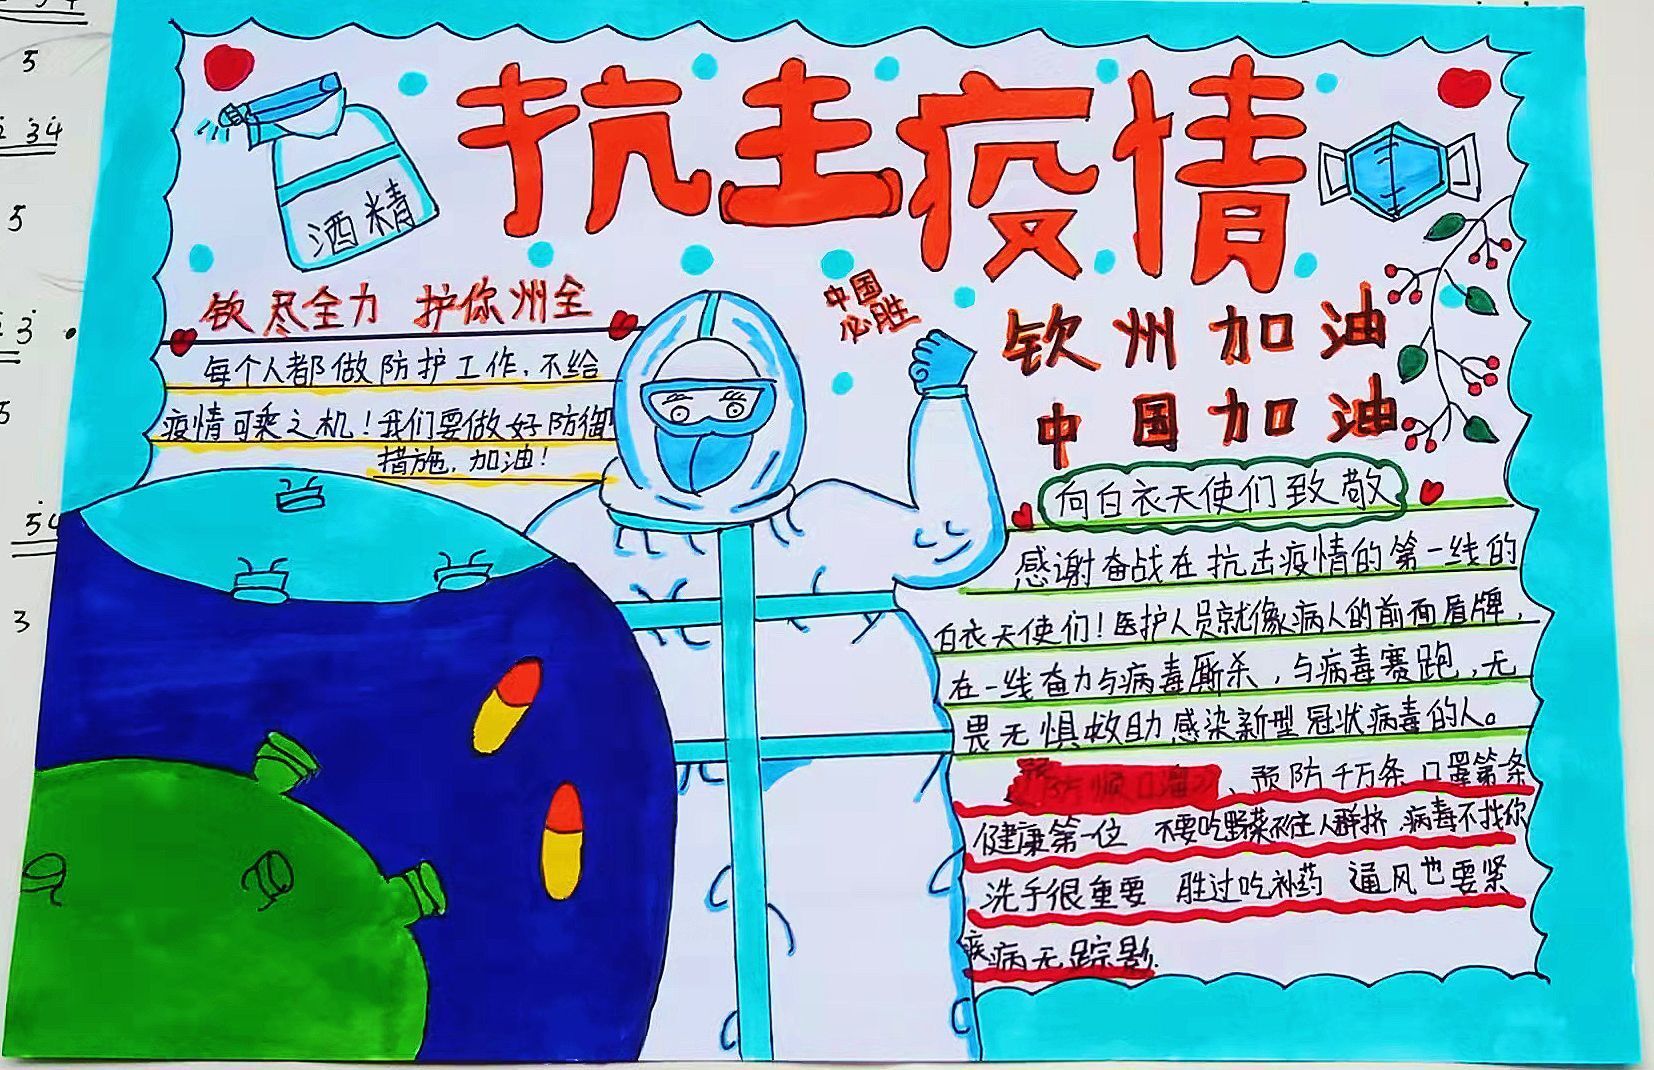 抗击疫情
酒精
钦尽全力 护你州全
每个人都做防护工作，不给
疫情可乘之机！我们要做好防御
措施，加油！
中国
必胜
钦州加油
中国加油
向白衣天使们致敬
感谢奋战在抗击疫情的第一线的
白衣天使们！医护人员就像病人的前面盾牌，
在一线奋力与病毒厮杀，与病毒赛跑，无
畏无惧救助感染新型冠状病毒的人。
预防顺口溜：、预防千万条 口罩第一条
健康第一位 不要吃野菜不往人群挤 病毒不找你
洗手很重要 胜过吃补药 通风也要紧
疾病无踪影.
5
34
5
3
5
54
3